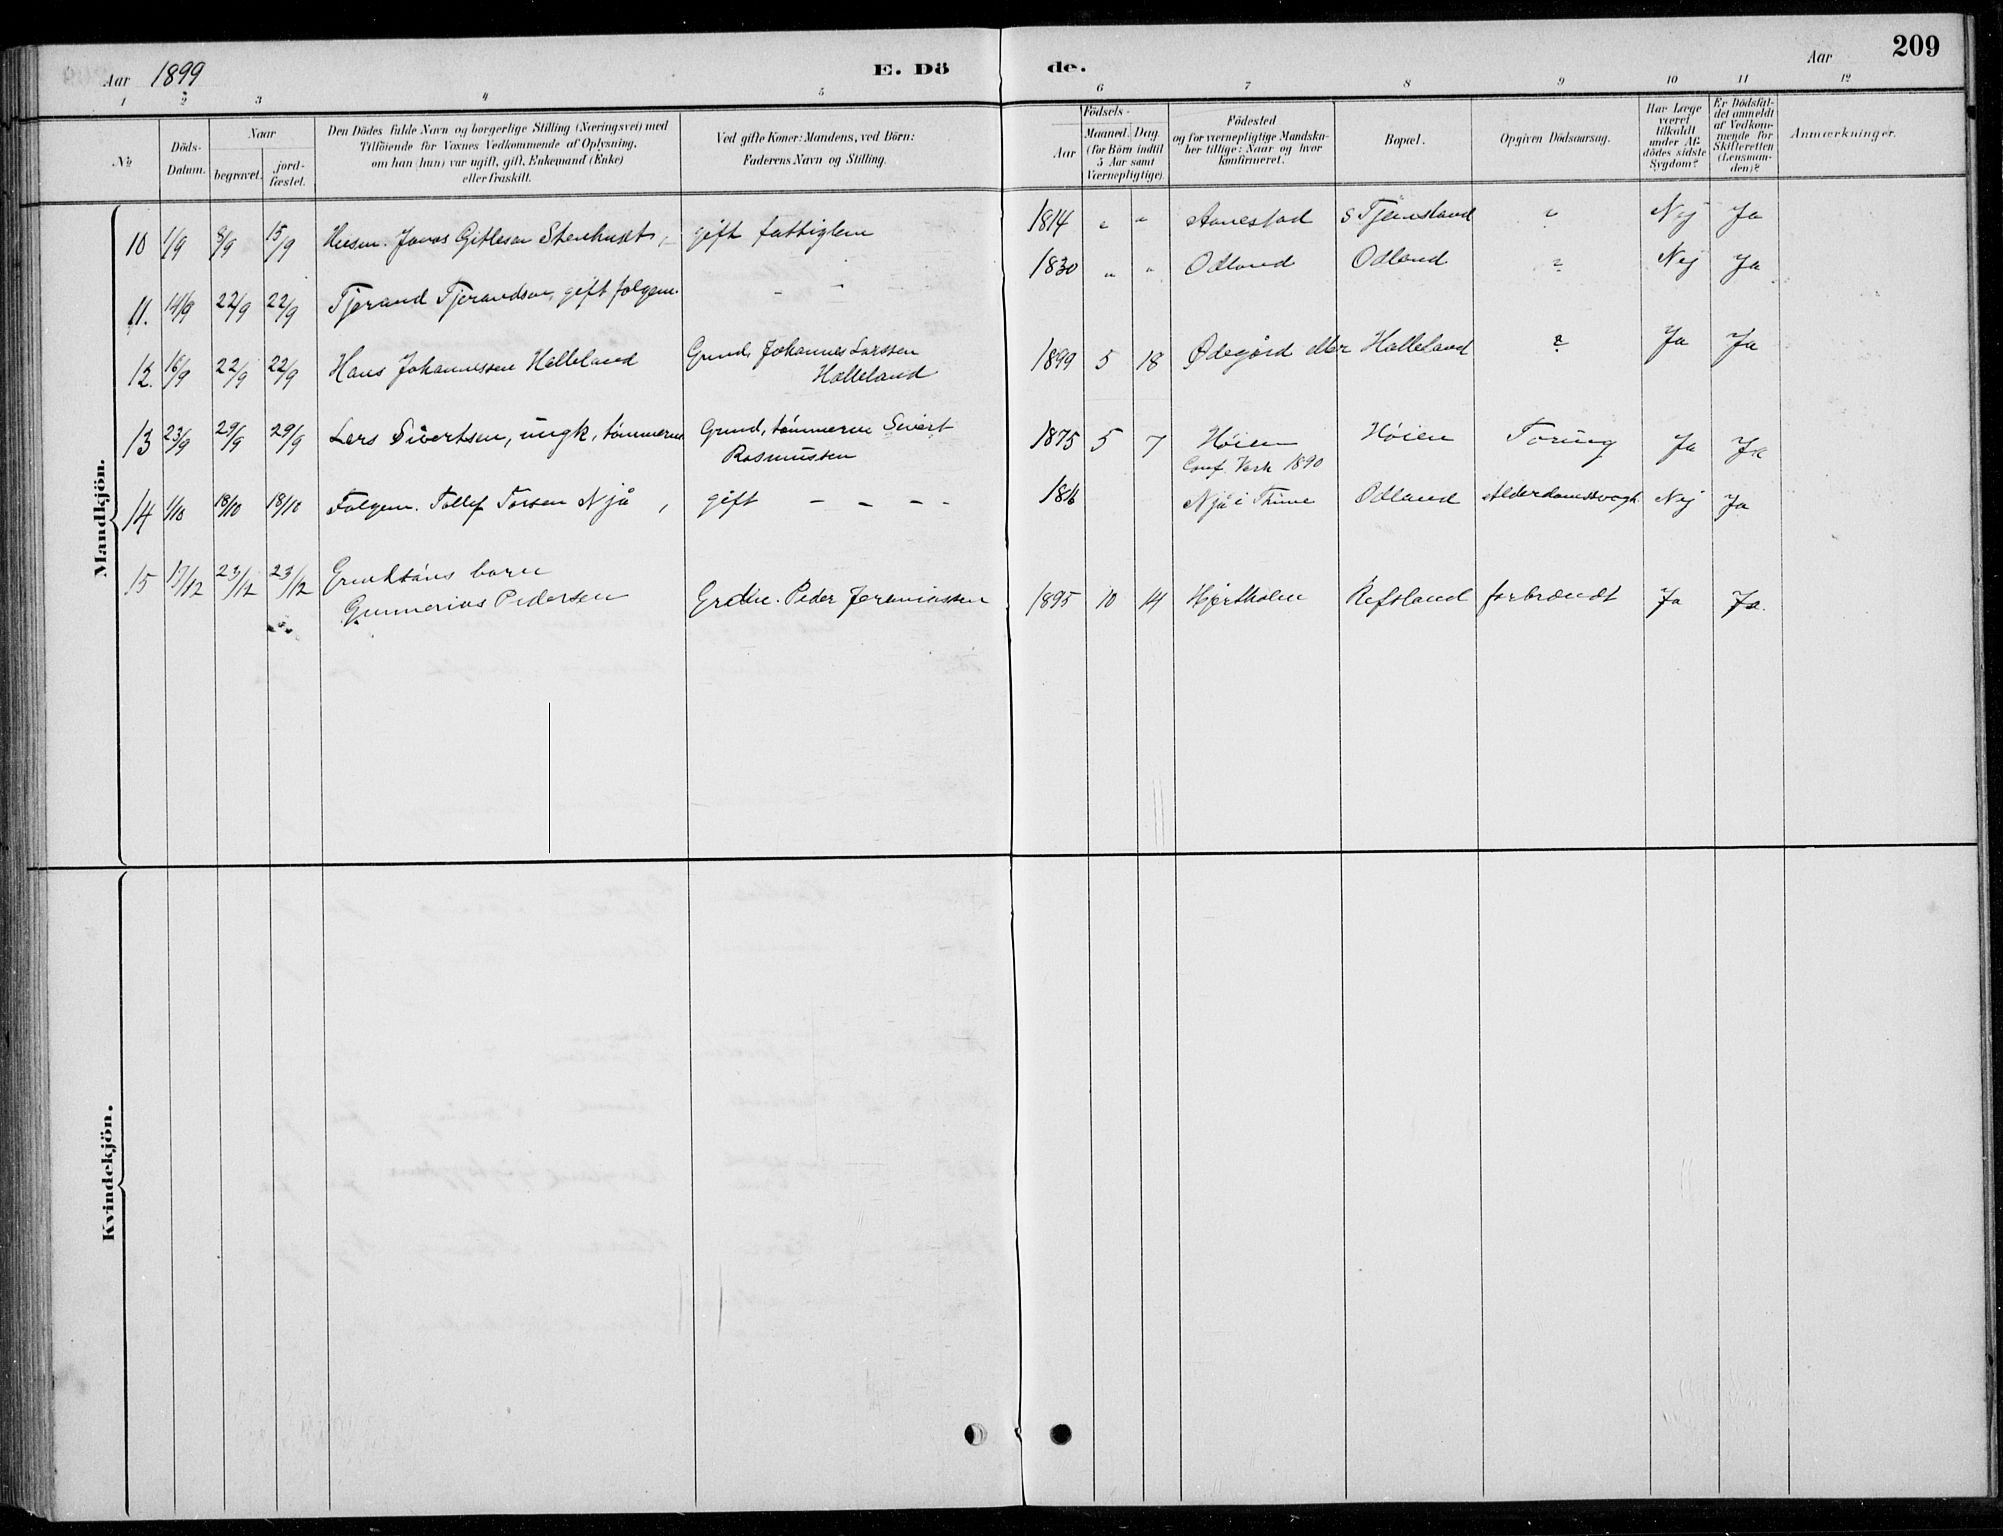 Aar 1899 E. Dö de. Aar 209
1 2 3 4 5 6 7 8 9 10 11 12
No
Döds-
Datum.
Naar
begravet.
jord-
fæstet.
Den Dödes fulde Navn og borgerlige Stilling (Næringsvei) med
Tilföiende for Voxnes Vedkommende af Oplysning,
om han (hun) var ugift, gift, Enkemand (Enke)
eller fraskilt.
Ved gifte Koner: Mandens, ved Börn:
Faderens Navn og Stilling.
Födsels-
Aar
Maaned. Dag.
(for Börn indtil
5 Aar samt
Værnepligtige).
Födested
og for værnepligtige Mandska-
ber tillige: Naar og hvor
konfirmeret.
Bopæl.
Opgiven Dödsaarsag.
Har Læge
været
tilkaldt
under Af-
dödes sidste
Sygdom?
Er Dödsfal-
det anmeldt
af Vedkom-
mende for
Skifteretten
(Lensman-
den)?
Anmærkninger.
Mandkjön.
10 1/9 8/9 15/9 Husm. Jonas Gitlesen gift fattiglem 1814 " " Aanestad S Tjemsland " Nej Ja
11. 14/9 22/9 22/9 Tjerand Tjerandsen, gift folgem. - - 1830 " " Odland Odland ? Nej Ja
12. 16/9 22/9 22/9 Hans Johannessen Halleland Grund. Johannes Larssen 1899 5 18 Ødegård eller Halleland ? Ja Ja
Halleland
13 23/9 29/9 29/9 Lars Sivertsen, ungk, tømmerm Grund, tømmerm Sivert 1875 5 7 Høien Høien Tæring Ja Ja
Rasmussen Conf. Varh 1890
14 1/10 18/10 18/10 Folgem. Tollef Torsen Njå, gift - - - - 1816 Njå i Thime Odland Alderdomssvagh. Nej Ja
15 17/12 23/12 23/12
Gunnerius Pedersen Peder Jeremiassen 1895 10 14 Hjortholm Refsland forbrændt Ja Ja.
Kvindekjön.